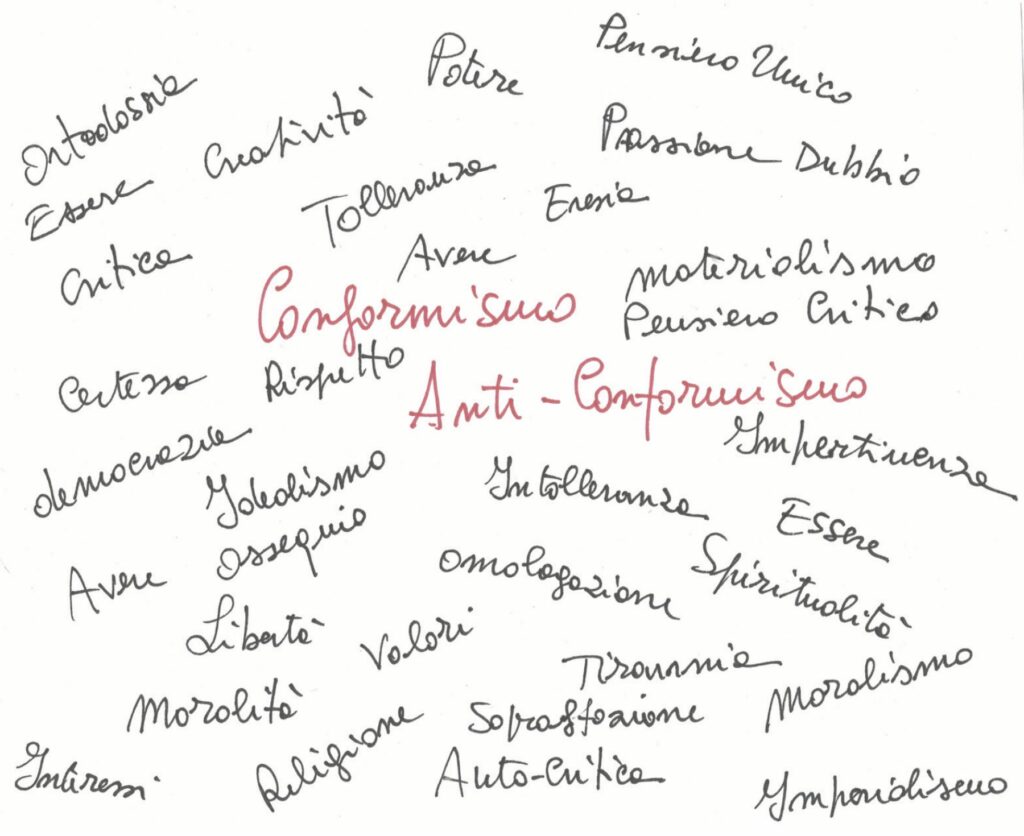 Potere
Pensiero Unico
Ortodossia
Creatività
Passione Dubbio
Essere
Tolleranza
Eresia
Critica
Avere
materialismo
Conformismo
Pensiero Critico
Certezza
Rispetto
Anti-Conformismo
democrazia
Impertinenza
Idealismo
Intolleranza
Essere
Avere
Ossequio
Omologazione
Spiritualità
Libertà
Valori
Tirannia
Moralismo
Moralità
Sopraffazione
Interessi
Religione
Auto-Critica
Imperialismo